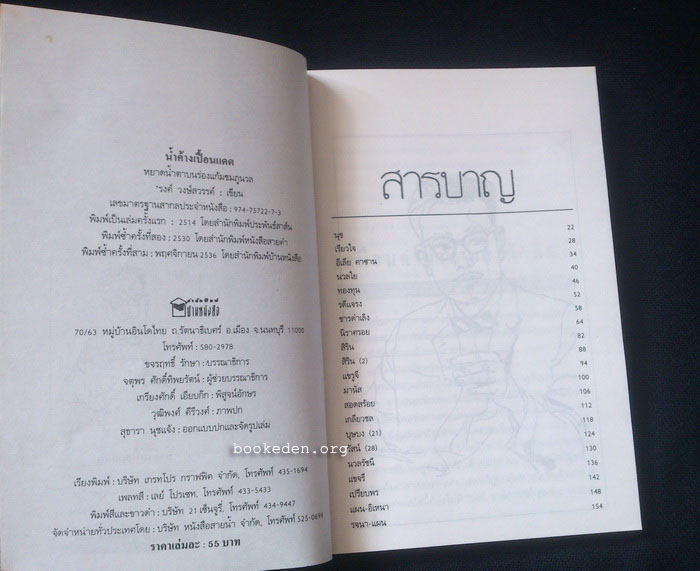 น้ำค้างเปื้อนแดด
หยาดน้ำตาบนร่องแก้มชมภูนวล
'รงค์ วงษ์สวรรค์ : เขียน
เลขมาตรฐานสากลประจำหนังสือ : 974-75722-7-3
พิมพ์เป็นเล่มครั้งแรก : 2514 โดยสำนักพิมพ์ประพันธ์สาส์น
พิมพ์ซ้ำครั้งที่สอง : 2530 โดยสำนักพิมพ์หนังสือสายคำ
พิมพ์ซ้ำครั้งที่สาม : พฤศจิกายน 2536 โดยสำนักพิมพ์บ้านหนังสือ
สำนักพิมพ์
บ้านหนังสือ
70/63 หมู่บ้านอินโดไทย ถ.รัตนาธิเบศร์ อ.เมือง จ.นนทบุรี 11000
โทรศัพท์ : 580-2978
ขจรฤทธิ์ รักษา : บรรณาธิการ
จตุพร ศักดิ์ทิพยรัตน์ : ผู้ช่วยบรรณาธิการ
เกรียงศักดิ์ เอียบกึก : พิสูจน์อักษร
วุฒิพงศ์ คีรีวงศ์ : ภาพปก
สุธารา นุชแจ้ง : ออกแบบปกและจัดรูปเล่ม
เรียงพิมพ์ : บริษัท เกรทโปร กราฟฟิค จำกัด, โทรศัพท์ 435-1694
เพลทสี : เลย์ โปรเซท, โทรศัพท์ 433-5433
พิมพ์สีและขาวดำ : บริษัท 21 เซ็นจูรี่, โทรศัพท์ 434-9447
จัดจำหน่ายทั่วประเทศโดย : บริษัท หนังสือสายน้ำ จำกัด, โทรศัพท์ 525-0699
ราคาเล่มละ : 55 บาท
bookeden.org
สารบาญ
นุช 22
เรียวใจ 28
อีเลีย คาซาน 34
นวลใย 40
ทองทุน 46
รตีแจรง 52
ซารต์เลิง 58
นิราศรอย 64
สิริน 82
สิริน (2) 88
แขรูจี 94
มานัส 100
สอดสร้อย 106
เกลียวชล 112
บุษบง (21) 118
รัสน์ (28) 124
นวลรัชนี 130
แขจรี 136
เปรียบพร 142
แผน-อิเหนา 148
รจนา-แผน 154